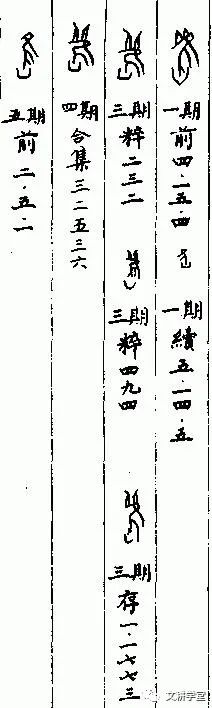 一期前四·一五·四
一期續五·一四·五
三期粹二三二
三期粹四九四
三期存一·一七七三
四期合集三二五三六
五期前二·五·一
文耕学堂